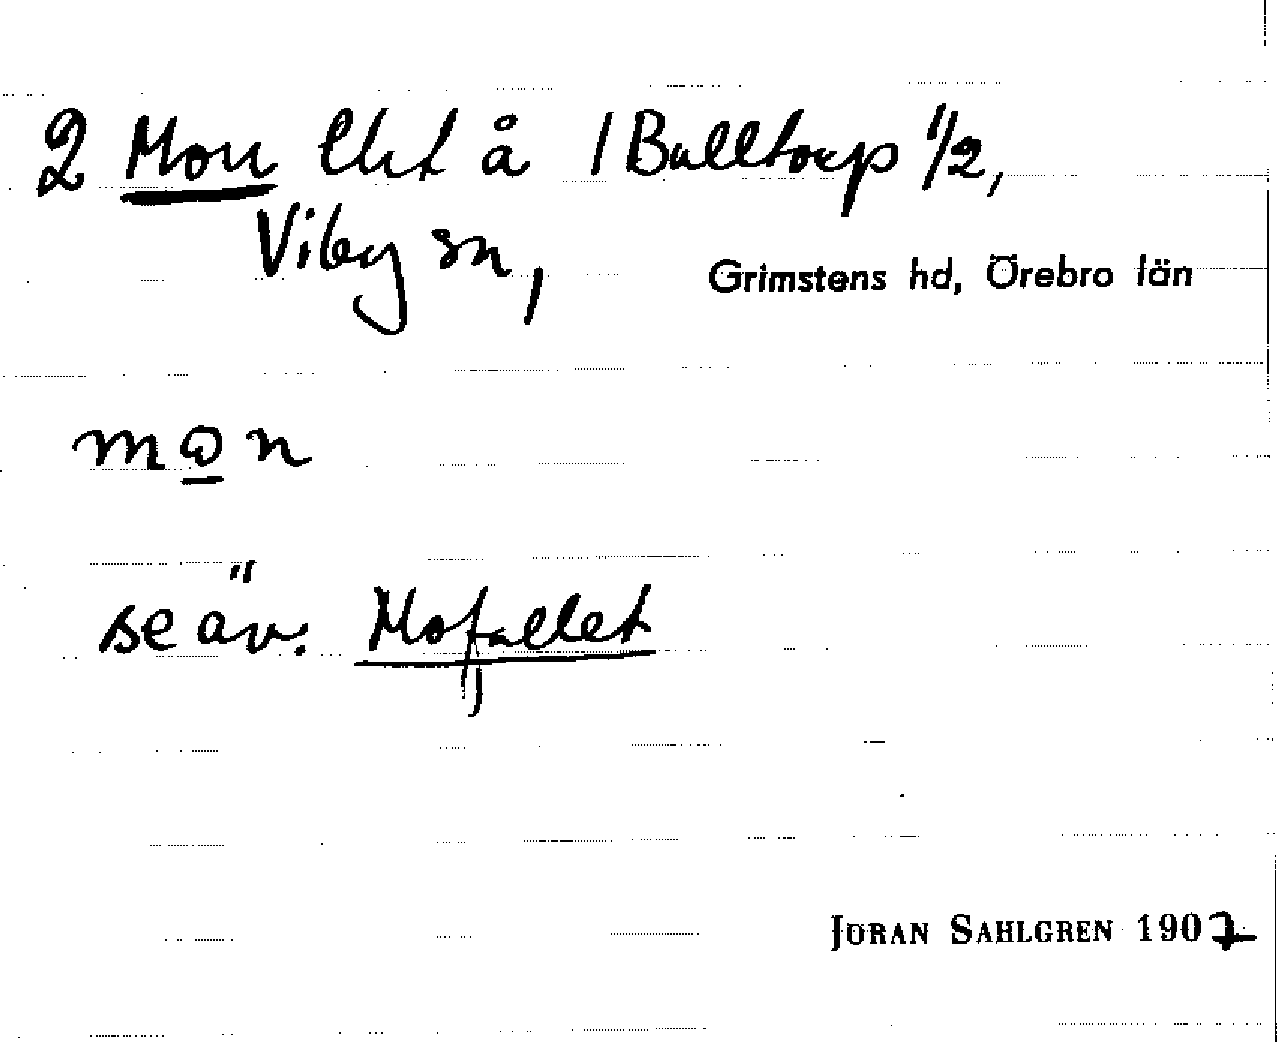 2 Mon lht å 1 Bulltorp 1/2,
Viby sn,
Grimstens hd, Örebro län
mọn
se äv. Mofallet
JÖRAN SAHLGREN 1907